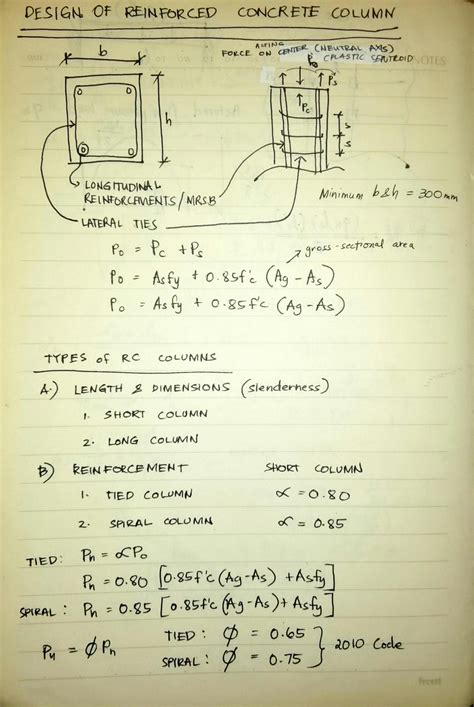 DESIGN OF REINFORCED CONCRETE COLUMN
ACTING
FORCE ON CENTER (NEUTRAL AXIS)
(PLASTIC CENTROID
NOTES
b
Po
Ps
Pc
h
s
s
LONGITUDINAL
REINFORCEMENTS/MRSB
LATERAL TIES
Minimum b&h = 300mm
Po = Pc + Ps
gross-sectional area
Po = Asfy + 0.85f'c (Ag - As)
Po = Asfy + 0.85f'c (Ag - As)
TYPES of RC COLUMNS
A.) LENGTH & DIMENSIONS (slenderness)
1. SHORT COLUMN
2. LONG COLUMN
B) REINFORCEMENT SHORT COLUMN
1. TIED COLUMN α = 0.80
2. SPIRAL COLUMN α = 0.85
TIED: Pn = αPo
Pn = 0.80 [0.85f'c (Ag-As) + Asfy]
SPIRAL: Pn = 0.85 [0.85f'c (Ag-As) + Asfy]
Pu = ϕPn TIED: ϕ = 0.65 } 2010 Code
SPIRAL: ϕ = 0.75